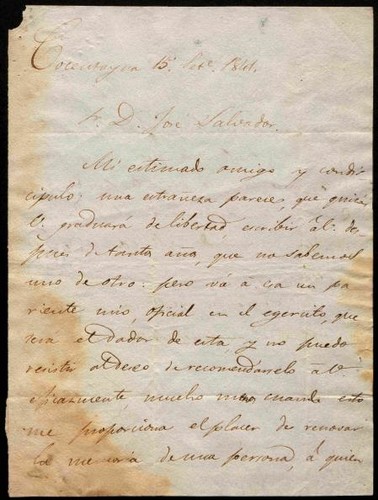 Cocentayna 15 Set.e 1841.
Sr. D. José Salvador.
Mi estimado amigo y condis
cipulo: una estrañeza parece, que quizá
V. graduará de libertad escribir al de
pues de tantos años, que no sabemos
uno de otro: pero vá á esa un pa
riente mio oficial en el egercito, que
sera el dador de esta y no puedo
resistir al deseo de recomendarselo á V.
eficazmente, mucho mas cuando esto
me proporciona el placer de renovar
la memoria de una persona, á quien